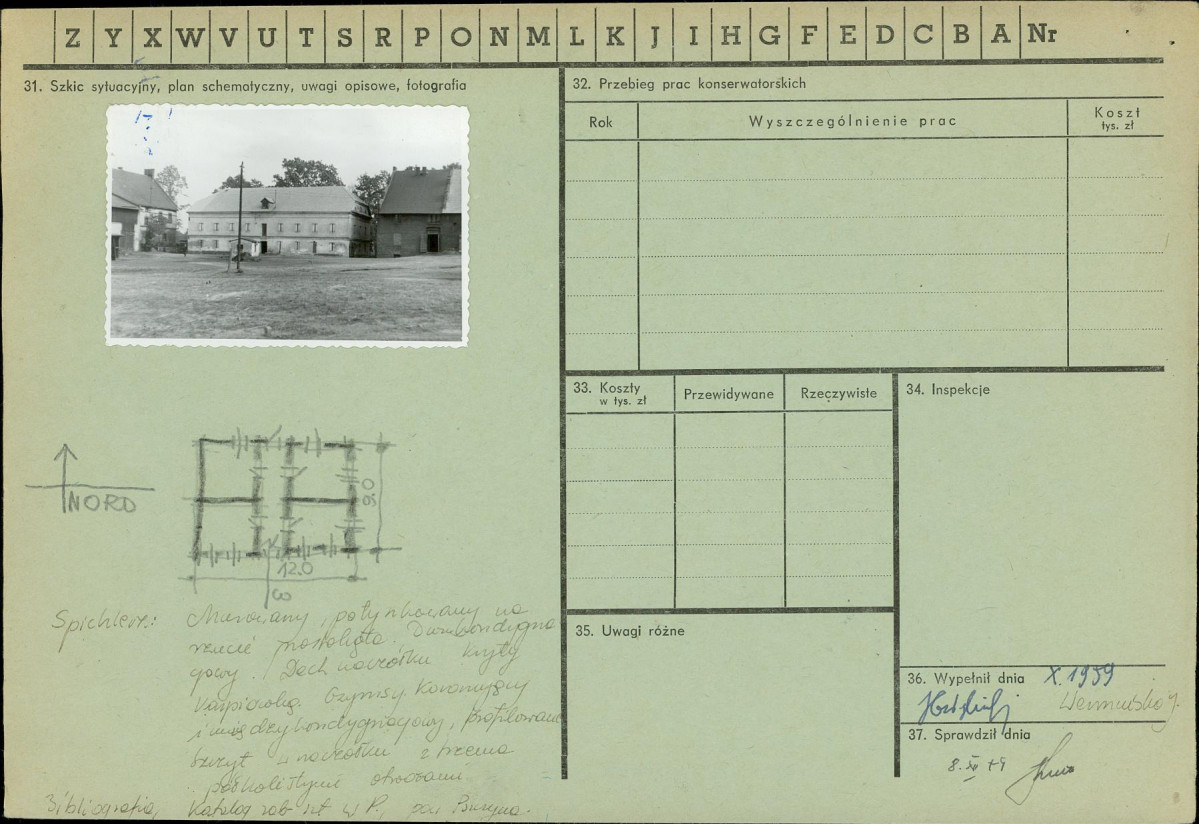 Z Y X W V U T S R P O N M L K J I H G F E D C B A Nr
31. Szkic sytuacyjny, plan schematyczny, uwagi opisowe, fotografia
NORD
12.0
Spichlerz: Murowany, potynkowany na
rzucie prostokąta. Dwukondygna
cjowy. Dach naczółku kryty
Karpiówką. Gzymsy koronujący
i międzykondygnacjowy, profilowane
szczyt w naczółku z trzema
półkolistymi otworami.
Bibliografia, Katalog zab szt w P., pow
32. Przebieg prac konserwatorskich
Rok
Wyszczególnienie prac
Koszt
tys. zł
33. Koszty
w tys. zł
Przewidywane
Rzeczywiste
34. Inspekcje
35. Uwagi różne
36. Wypełnił dnia X. 1959
37. Sprawdził dnia